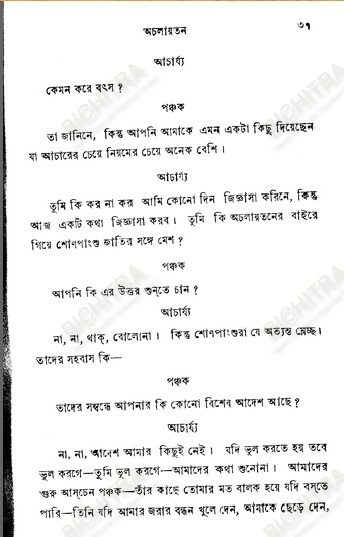 অচলায়তন ৩৭
আচার্য্য
কেমন করে বৎস ?
পঞ্চক
তা জানিনে, কিন্তু আপনি আমাকে এমন একটা কিছু দিয়েছেন
যা আচারের চেয়ে নিয়মের চেয়ে অনেক বেশি ।
আচার্য্য
তুমি কি কর না কর আমি কোনো দিন জিজ্ঞাসা করিনে, কিন্তু
আজ একটি কথা জিজ্ঞাসা করব । তুমি কি অচলায়তনের বাইরে
গিয়ে শোণপাংশু জাতির সঙ্গে মেশ ?
পঞ্চক
আপনি কি এর উত্তর শুন্‌তে চান ?
আচার্য্য
না, না, থাক্, বোলোনা । কিন্তু শোণপাংশুরা যে অত্যন্ত ম্লেচ্ছ ।
তাদের সহবাস কি—
পঞ্চক
তাদের সম্বন্ধে আপনার কি কোনো বিশেষ আদেশ আছে ?
আচার্য্য
না, না, আদেশ আমার কিছুই নেই । যদি ভুল করতে হয় তবে
ভুল করগে—তুমি ভুল করগে—আমাদের কথা শুনোনা । আমাদের
গুরু আস্‌চেন পঞ্চক—তাঁর কাছে তোমার মত বালক হয়ে যদি বস্‌তে
পারি—তিনি যদি আমার জরার বন্ধন খুলে দেন, আমাকে ছেড়ে দেন,
BICHITRA